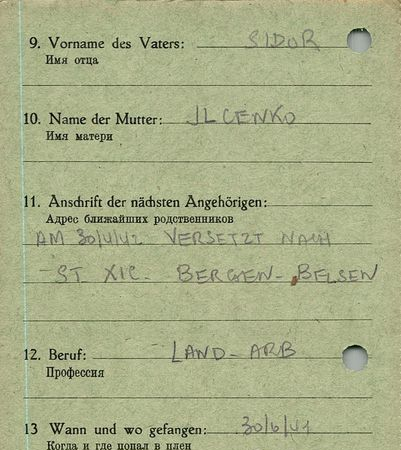 9. Vorname des Vaters: SIDOR
Имя отца
10. Name der Mutter: JLCENKO
Имя матери
11. Anschrift der nächsten Angehörigen:
Адрес ближайших родственников
AM 30/4/42 VERSETZT NACH
ST. XIC. BERGEN-BELSEN
12. Beruf: LAND-ARB
Профессия
13 Wann und wo gefangen: 30/6/41
Когда и где попал в плен